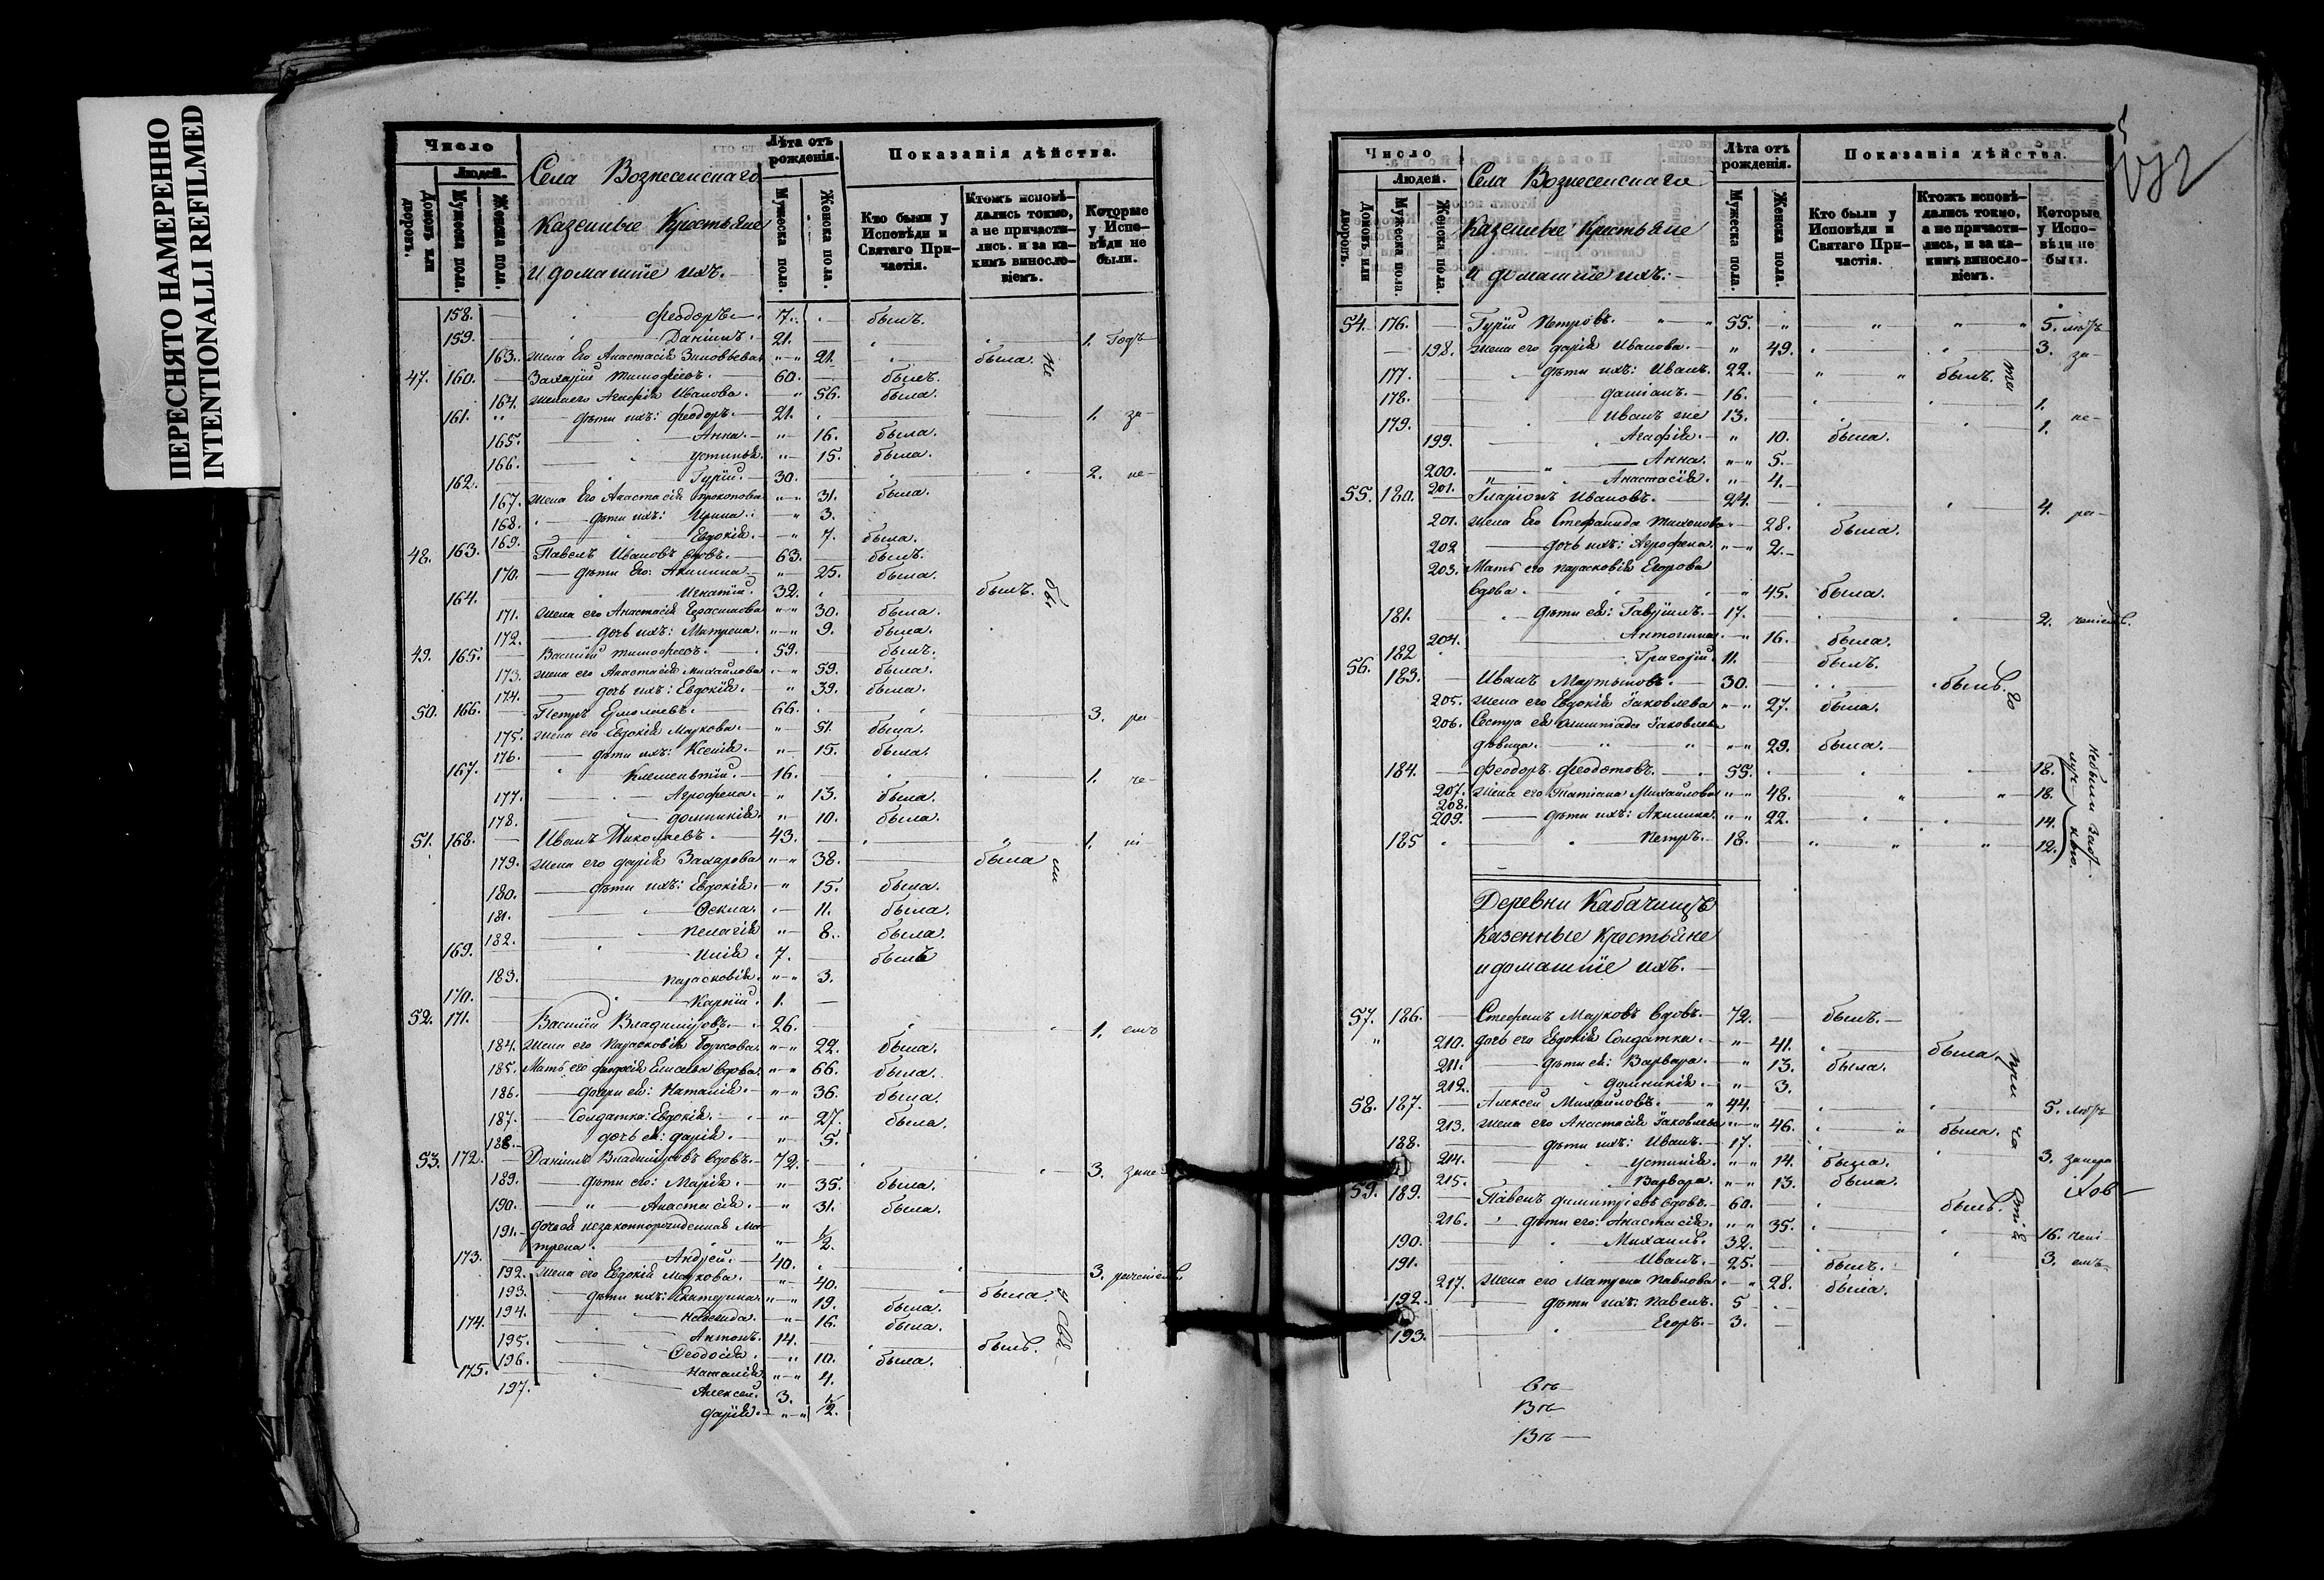 ПЕРЕСНЯТО НАМЕРЕННО
INTENTIONALLI REFILMED
Число
Людей.
Домовъ или дворовъ.
Мужеска пола.
Женска пола.
Села Вознесенскаго
Казенные Крестьяне
и домашніе ихъ.
Лѣта отъ рожденія.
Мужеска пола.
Женска пола.
Показанія дѣйства.
Кто были у Исповѣди и Святаго Причастія.
Ктожъ исповѣдались токмо, а не причастились. и за какимъ винословіемъ.
Которые у Исповѣди не были.
158. Феодоръ. 7. былъ.
159. Даніилъ. 21. 1. годъ
163. Жена Его Анастасія Зиновьева 21. была. не
47. 160. Захарій Тимофѣевъ. 60. былъ.
164. Жена его Агафія Иванова. 56. была.
161. дѣти ихъ: Феодоръ. 21. 1. за-
165. Анна. 16. была.
166. Устинья. 15. была.
162. Гурій. 30. 2. не-
167. Жена Его Анастасія Прокопова 31. была.
168. дѣти ихъ: Ирина. 3.
169. Евдокія. 7. была.
48. 163. Павелъ Ивановъ вдовъ. 63. былъ.
170. дѣти Его: Акилина. 25. была.
164. Игнатій. 32. былъ. бы
171. Жена его Анастасія Герасимова 30. была.
172. дочь ихъ: Матрена. 9. была.
49. 165. Василій Тимофѣевъ. 59. былъ.
173. Жена его Анастасія Михайлова 59. была.
174. дочь ихъ: Евдокія. 39. была.
50. 166. Петръ Ермолаевъ. 66. 3. ра-
175. Жена его Евдокія Маркова. 51. была.
176. дѣти ихъ: Ксенія. 15. была.
167. Клементій. 16. 1. че-
177. Агрофена. 13. была.
178. Домникія. 10. была.
51. 168. Иванъ Николаевъ. 43. 1. ні
179. Жена его Дарія Захарова 38. была ли
180. дѣти ихъ: Евдокія. 15. была.
181. Ѳекла. 11. была.
182. Пелагія 8. была.
169. Илія. 7. былъ
183. Парасковія. 3.
170. Карпій. 1.
52. 171. Василій Владиміровъ. 26. 1. емъ
184. Жена его Парасковія 22. была.
185. Мать его Елисеева вдова. 66. была.
186. дочери ея: Наталія. 36. была.
187. Солдатка: Евдокія. 27. была.
188. дочь ея: Дарія. 5.
53. 172. Даніилъ Владиміровъ вдовъ. 72. 3. зане
189. дѣти его: Марія. 35. была.
190. Анастасія. 31. была.
191. дочь ея незаконнорожденная Ма-
трена. 1/2.
173. Андрей. 40. 3. раченіемъ.
192. Жена его Евдокія Маркова. 40. была. у Свя-
193. дѣти ихъ: Екатерина. 19. была.
194. Надежда. 16. была.
174. Антонъ. 14. былъ.
195. Ѳеодосія. 10. была.
196. Наталія 4.
175. Алексѣй. 3.
197. Дарія. 1/2.
Число
Людей.
Домовъ или дворовъ.
Мужеска пола.
Женска пола.
Села Вознесенскаго
Казенные Крестьяне
и домашніе ихъ:
Лѣта отъ рожденія.
Мужеска пола.
Женска пола.
Показанія дѣйства.
Кто были у Исповѣди и Святаго Причастія.
Ктожъ исповѣдались токмо, а не причастились, и за какимъ винословіемъ.
Которые у Исповѣди не были.
54. 176. Гурій Петровъ. 55. 5. лѣтъ
198. Жена его Дарія Иванова. 49. 3. за-
177. дѣти ихъ: Иванъ. 22. былъ. та
178. Даніилъ. 16. 1.
179. Иванъ же 13. 1. не-
199. Агафія. 10. была.
200. Анна. 5.
201. Анастасія. 4.
55. 180. Иларіонъ Ивановъ. 24. 4. ра-
201. Жена Его Стефанида Тихонова 28. была.
202 дочь ихъ: Агрофена. 2.
203. Мать его Парасковія Егорова
вдова. 45. была.
181. дѣти ея: Гавріилъ. 17. 2. ченіемъ.
204. Антонина. 16. была.
182 Григорій. 11. былъ.
56. 183. Иванъ Мартыновъ. 30. былъ. го
205. Жена его Евдокія Іаковлева 27. была.
206. Сестра ея Іаковлева
дѣвица. 29. была.
184. Феодоръ Феодотовъ. 55. 18.
207. Жена его Татіана Михайлова 48. 18.
208.
209. дѣти ихъ: Акилина. 22. 14.
185 Петръ. 18. 12.
Деревни Кабачищъ
Казенные Крестьяне
и домашніе ихъ.
57. 186. Стефанъ Марковъ вдовъ. 72. былъ.
210. дочь его Евдокія Солдатка. 41. была. при
211. дѣти ея: Варвара. 13. была.
212. Домникія. 3.
58. 187. Алексей Михайловъ. 44. 5. лѣтъ
213. Жена его Анастасія Іаковлева 46. была. ча
188. дѣти ихъ: Иванъ. 17. 3. занера
214. Устинія. 14. была.
215. Варвара. 13. была.
59. 189. Павелъ Димитріевъ вдовъ. 60. былъ. стіѣ
216. дѣти его: Анастасія. 35. 16. чені
190. Михаилъ. 32. 3. емъ
191. Иванъ. 25. былъ.
217. Жена его Матрена Павлова 28. была.
192. дѣти ихъ: Павелъ. 5
193. Егоръ. 3.